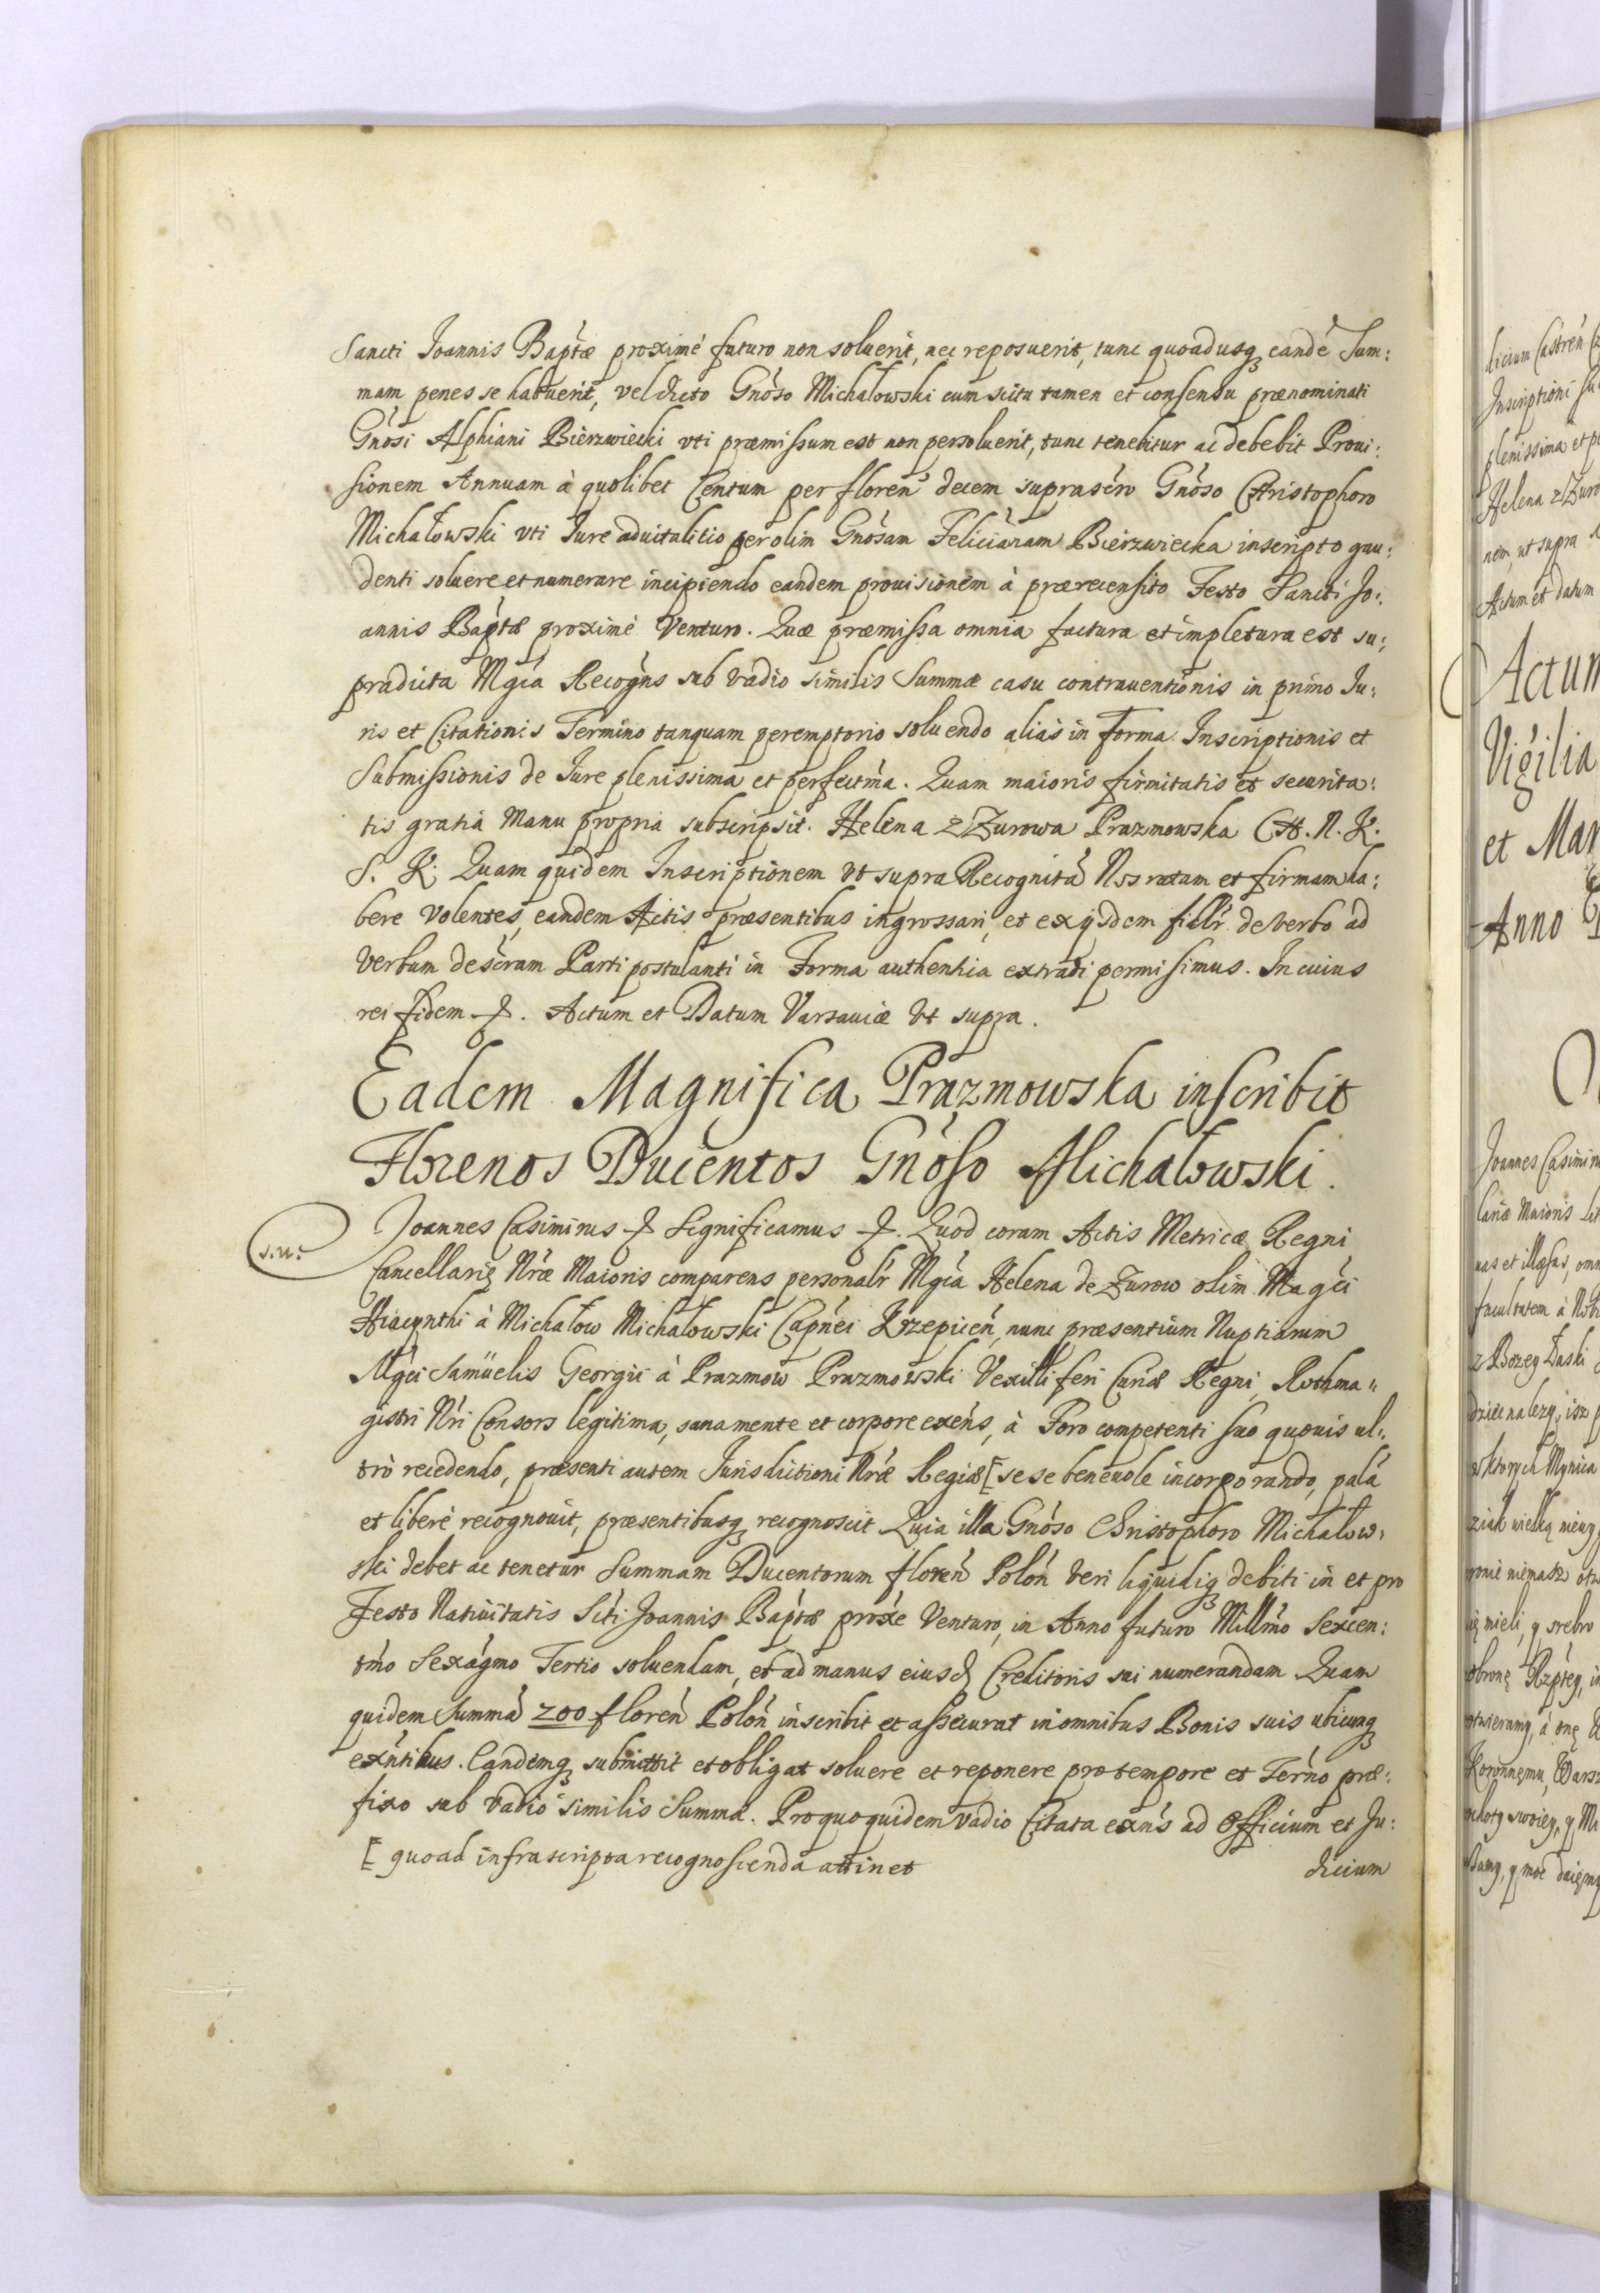 Sancti Joannis Baptæ proximé futuro non soluerit, nec reposuerit, tunc quoadusq eandē Sum:
mam penes se habuerit, vel dicto Gnoso Michałowski cum scitu tamen et consensu prænominati
Gnosi Alphiani Bierzwiecki vti præmissum est non persoluerit, tunc tenebitur ac debebit Proui:
sionem Annuam à quolibet Centum per floren decem suprascro Gnoso Christophoro
Michałowski vti Jure aduitalitio per olim Gnosam Feliciànam Bierzwiecka inscripto gau:
denti soluere et numerare incipiendo eandem prouisionem à prærecensito Festo Sancti Jo:
annis Baptæ proximé Venturo. Quæ præmissa omnia factura et impletura est su:
pradicta Mgca Recogns sub vadio similis Summæ casu contrauentionis in primo Ju:
ris et Citationis Termino tanquam peremptorio soluendo aliàs in forma Inscriptionis et
Submissionis de Jure plenissima et perfectma. Quam maioris firmitatis et securita:
tis gratia Manu propria subscripsit. Helena z Zurowa Prazmowska CH. N. K.
S. K. Quam quidem Inscriptionem vt supra Recognitā Nos ratam et firmam ha:
bere Volentes, eandem Actis præsentibus ingrossari, et ex ijsdem fidlr de verbo ad
Verbum descram Parti postulanti in Forma authentica extradi permisimus. In cuius
rei fidem &. Actum et Datum Varsauiæ vt supra.
Eadem Magnifica Prazmowska inscribit
Florenos Ducentos Gnoso Michałowski.
s.n: Joannes Casimirus & Significamus &. Quod coram Actis Metricæ Regni
Cancellarię Nræ Maioris comparens personalr Mgca Helena de Zurow olim Magci
Hiacynthi à Michałow Michałowski Capnei Krzepicen, nunc præsentium Nuptiarum
Mgci Samüelis Georgii à Prazmow Prazmowski Vexilliferi Curiæ Regni, Rothma"
gistri Nri Consors legitima, sana mente et corpore exens, à Foro competenti suo quouis ul:
trò recedendo, præsenti autem Jurisdictioni Nræ Regiæ [ se se beneuole incorporando, palā
et liberé recognouit, præsentibusq recognoscit Quia illa Gnoso Christophoro Michałow:
ski debet ac tenetur Summam Ducentorum floren Polon veri liquidiq debiti in et pro
Festo Natiuitatis Scti Joannis Baptæ proxe Venturo, in Anno futuro Millmo Sexcen:
tmo Sexagmo Tertio soluendam, et ad manus eiusd Creditoris sui numerandam Quam
quidem Summā 200 floren Polon inscribit et assecurat in omnibus Bonis suis ubicunq
exntibus. Eandemq submittit et obligat soluere et reponere pro tempore et Terno præ:
fixo sub vadio similis Summæ. Pro quo quidem vadio Citata exns ad Officium et Ju:
[ quoad infrascripta recognoscenda attinet
dicium
dicium Castren
Inscriptioni
plenissima et
Helena z Zuro
nem, ut supra
Actum et datum
Actum
Vigilia
et Mar
Anno
Joannes Casimir
lariæ Maioris
uas et illæsas, omn
facultatem à
z Bozey Łaski